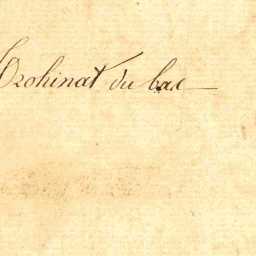 Crohinat du bac